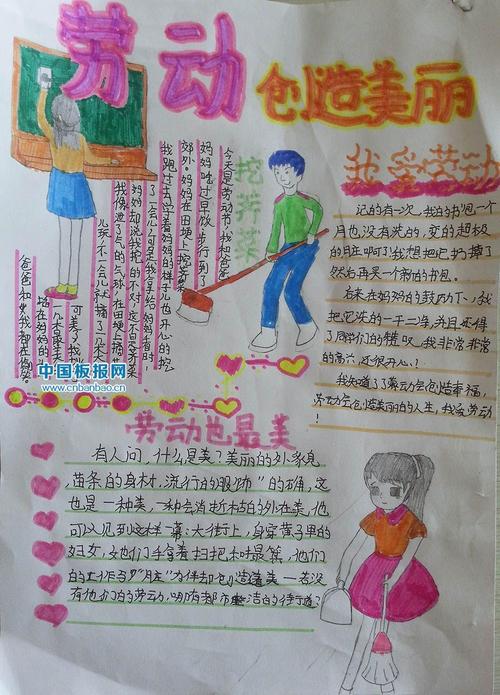 劳动
创造美丽
我爱劳动
记的有一次,我的书包一个
月也没有洗的,变的超极
的脏啊了!我想把它扔掉了
然后再买一个新的书包。
后来在妈妈的鼓励下,我
把它洗的一干二净,并且还得
了同学们的赞叹,我非常非常
的高兴,还很开心?
我知道了劳动会创造幸福,
劳动会创造美丽的人生,我爱劳动
!
挖荠菜
今天是劳动节,我和爸爸
妈妈吃过早饭,步行到了
郊外。妈妈在田埂上挖荠菜
我跑过去学着妈妈的样子儿也开心的挖
了一会儿,可是我拿给妈妈看时,
妈妈却说我挖的不对,这不是荠菜
我像泄了气的气球,在田埂上
爸爸和
中国板报网
www.cnbanbao.cn
劳动也最美
有人问,什么是美?美丽的外表
苗条的身材,流行的服饰"的确,这
也是一种美,一种会消逝的外在美,他
可以见到这样一幕:大街上,身穿黄
妇女,她们手拿着扫把和
的工作与"脏"为伴却创造着美一若没
有他们的劳动,哪有都市整洁的街道?